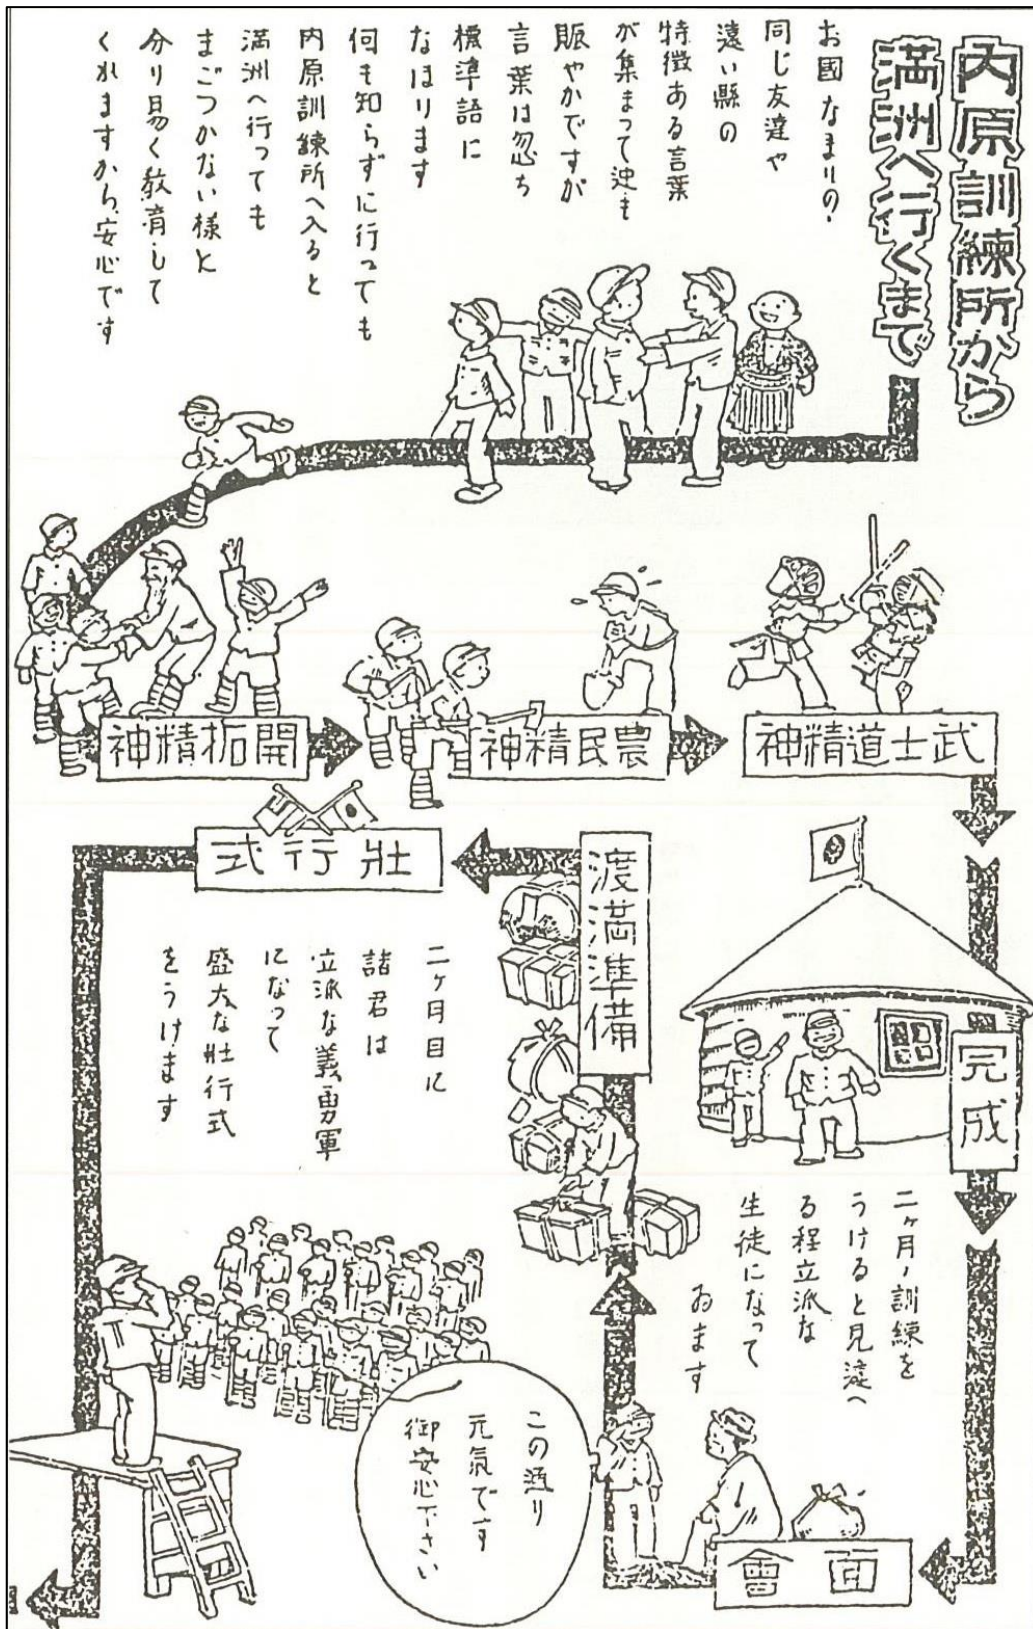 内原訓練所から
満洲へ行くまで
お國なまりの?
同じ友達や
遠い縣の
特徴ある言葉
が集まって迚も
賑やかですが
言葉は忽ち
標準語に
なほります
何も知らずに行っても
内原訓練所へ入ると
満洲へ行っても
まごつかない様に
分り易く教育して
くれますから安心です
神精拓開
神精民農
神精道士武
完成
二ヶ月ノ訓練を
うけると見違へ
る程立派な
生徒になって
ゐます
會面
この通り
元気です
御安心下さい
渡満準備
式行壯
二ヶ月目に
諸君は
立派な義勇軍
になって
盛大な壮行式
をうけます